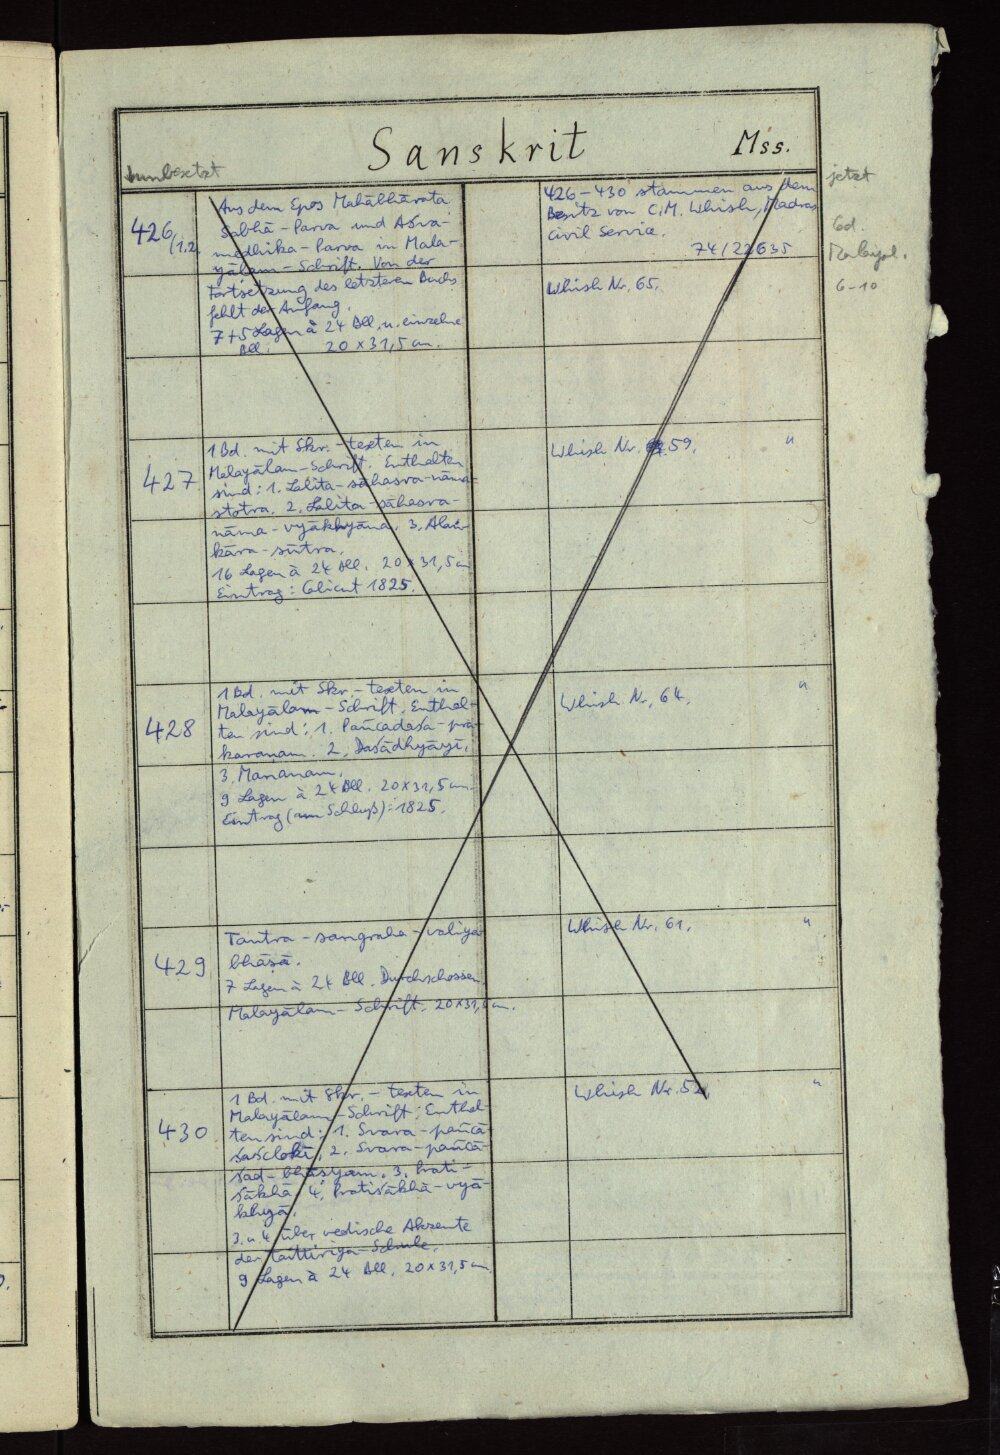 Sanskrit Mss.
unbesetzt
jetzt
Cod.
Malayal.
6-10
426 (1.2
Aus dem Epos Mahābhārata
Sabhā-Parva und Aśva-
medhika-Parva in Mala-
yālam-Schrift. Von der
Fortsetzung des letzteren Buchs
fehlt der Anfang.
7+5 Lagen à 24 Bll. u. einzelne
Bll. 20 x 31,5 cm.
426-430 stammen aus dem
Besitz von C.M. Whish, Madras
Civil Service.
74/22635
Whish Nr. 65.
427
1 Bd. mit Skr.-texten in
Malayālam-Schrift. Enthalten
sind: 1. Lalita-sahasra-nāma-
stotra. 2. Lalita-sahasra-
nāma-vyākhyāna. 3. Alaṅ-
kāra-sūtra.
16 Lagen à 24 Bll. 20 x 31,5 cm
Eintrag: Calicut 1825.
Whish Nr. 59. "
428
1 Bd. mit Skr.-texten in
Malayālam-Schrift. Enthal-
ten sind: 1. Pañcadaśa-pra-
karanam. 2. Daśādhyāyī.
3. Mananam.
9 Lagen à 24 Bll. 20 x 31,5 cm.
Eintrag (am Schluß): 1825.
Whish Nr. 64. "
429
Tantra-sangraha-valiya
bhāṣā.
7 Lagen à 24 Bll. Durchschossen.
Malayālam-Schrift. 20 x 31,5 cm.
Whish Nr. 61. "
430
1 Bd. mit Skr.-texten in
Malayālam-Schrift; Enthal-
ten sind: 1. Svara-pañcā-
śaścloki, 2. Svara-pañcā-
śad-bhāṣyam. 3. Prati-
śākhā. 4. Pratiśākhā-vyā-
khyā.
3. u. 4. über vedische Akzente
der Taittiriya-Schule.
9 Lagen à 24 Bll. 20 x 31,5 cm
Whish Nr. "